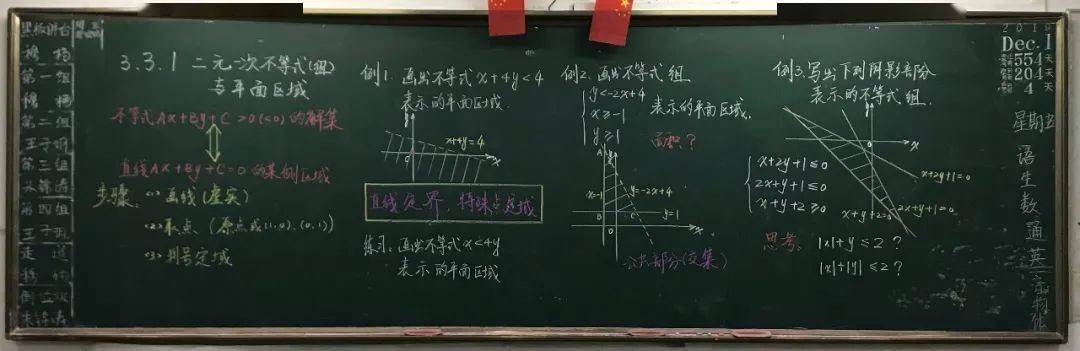 黑板讲台
穆 杨
第一组
穆 杨
第二组
王子妍
第三组
第四组
王子
走道
倒垃圾
3.3.1 二元一次不等式(组)
与平面区域
不等式Ax+By+C>0(<0)的解集
直线Ax+By+C=0的某侧区域
步骤:<1>画线(虚实)
<2>取点、(原点或(1,0)、(0,1))
<3>判号定域
例1.画出不等式x+4y<4
表示的平面区域.
y
x+4y=4
0
x
直线定界,特殊点定域
练习:画出不等式x<4y
表示的平面区域
例2.画出不等式组
y<-2x+4
x≥-1
y≥1
表示的平面区域.
面积?
A
x=-1
y=-2x+4
B
C
y=1
0
x
公共部分(交集)
例3.写出下列阴影部分
表示的不等式组.
y
x
x+2y+1≤0
2x+y+1≤0
x+y+2≥0
x+2y+1=0
x+y+2=0
2x+y+1=0
思考:|x|+y≤2?
|x|+|y|≤2?
Dec.1
554天
204天
4天
星期五
语
生
数
通
英